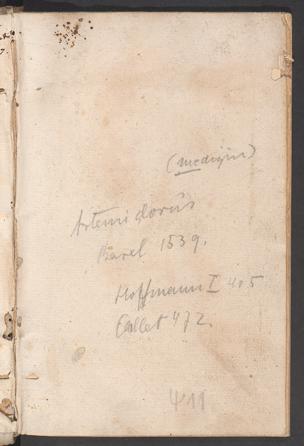 (Medizin)
Artemidorus
Basel 1539.
Hoffmann I 405
472.